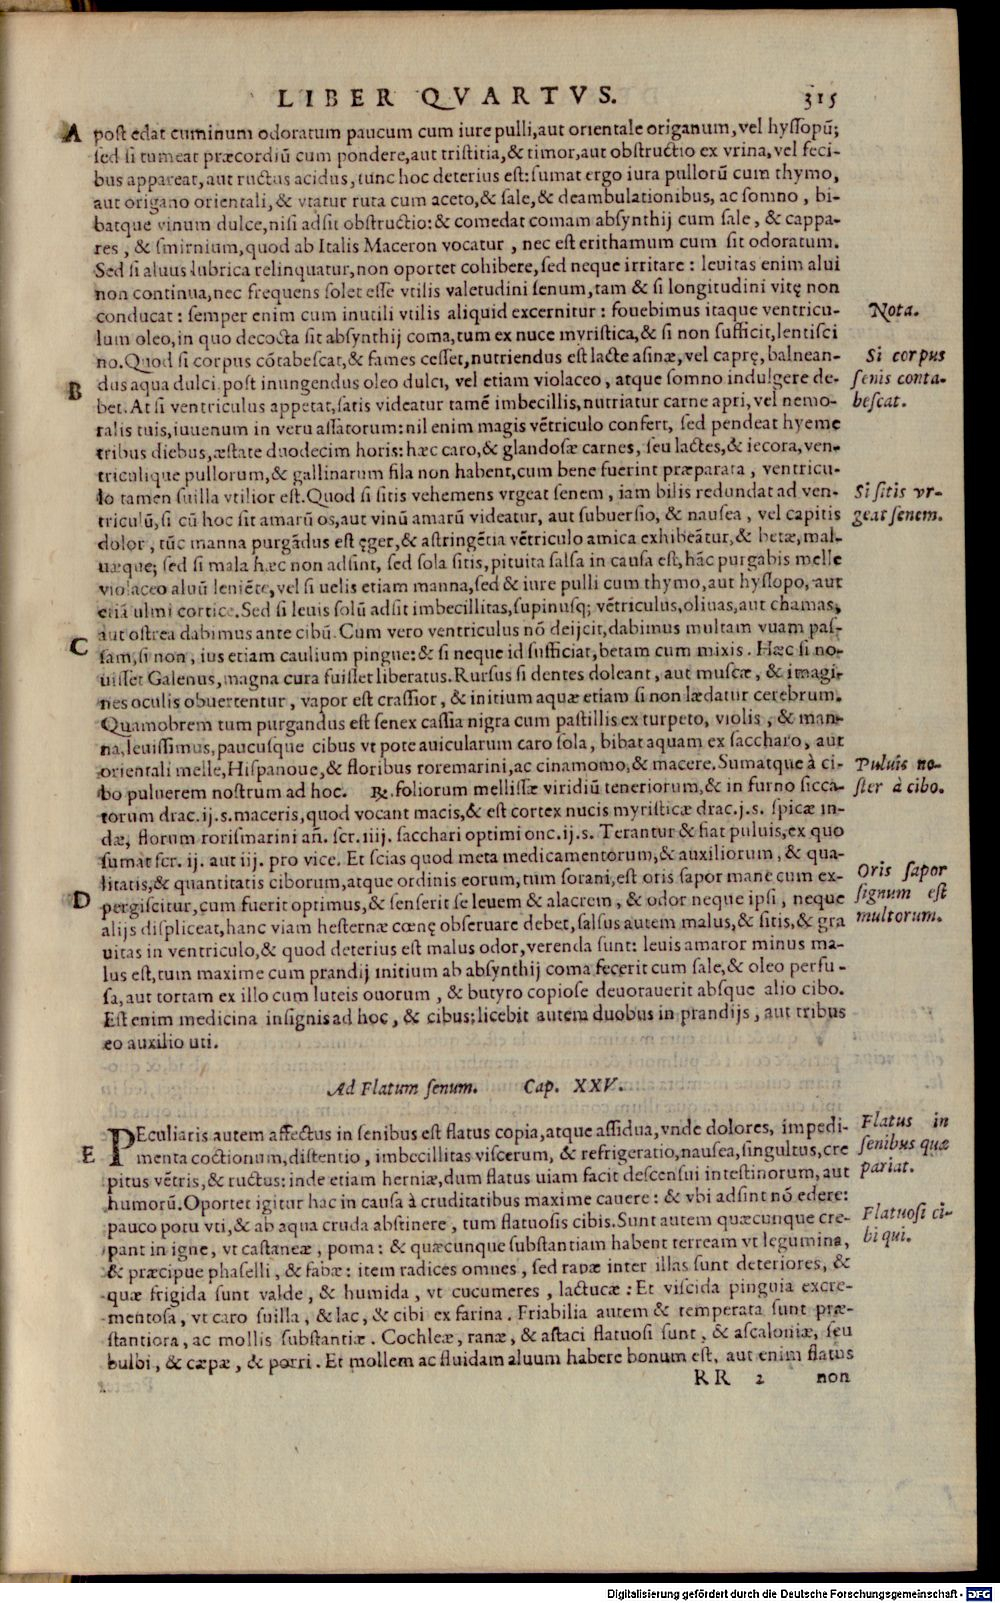 LIBER QVARTVS. 315
A poſt edat cuminum odoratum paucum cum iure pulli, aut orientale origanum, vel hyſſopū;
ſed ſi tumeat præcordiū cum pondere, aut triſtitia, & timor, aut obſtructio ex vrina, vel feci-
bus appareat, aut ructus acidus, tunc hoc deterius eſt: ſumat ergo iura pullorū cum thymo,
aut origano orientali, & vtatur ruta cum aceto, & ſale, & deambulationibus, ac ſomno, bi-
batque vinum dulce, niſi adſit obſtructio: & comedat comam abſynthij cum ſale, & cappa-
res, & ſmirnium, quod ab Italis Maceron vocatur, nec eſt erithamum cum ſit odoratum.
Sed ſi aluus lubrica relinquatur, non oportet cohibere, ſed neque irritare: leuitas enim alui
non continua, nec frequens ſolet eſſe vtilis valetudini ſenum, tam & ſi longitudini vitę non
conducat: ſemper enim cum inutili vtilis aliquid excernitur: fouebimus itaque ventricu-
Nota.
lum oleo, in quo decocta ſit abſynthij coma, tum ex nuce myriſtica, & ſi non ſufficit, lentiſci
no. Quod ſi corpus cōtabeſcat, & fames ceſſet, nutriendus eſt lacte aſinæ, vel caprę, balnean-
Si corpus
B dus aqua dulci. poſt inungendus oleo dulci, vel etiam violaceo, atque ſomno indulgere de-
ſenis conta-
bet. At ſi ventriculus appetat, ſatis videatur tamē imbecillis, nutriatur carne apri, vel nemo-
beſcat.
ralis ſuis, iuuenum in veru aſſatorum: nil enim magis vētriculo confert, ſed pendeat hyeme
tribus diebus, æſtate duodecim horis: hæc caro, & glandoſæ carnes, ſeu lactes, & iecora, ven-
triculique pullorum, & gallinarum fila non habent, cum bene fuerint præparata, ventricu-
lo tamen ſuilla vtilior eſt. Quod ſi ſitis vehemens vrgeat ſenem, iam bilis redundat ad ven-
Si ſitis vr-
triculū, ſi cū hoc ſit amarū os, aut vinū amarū videatur, aut ſubuerſio, & nauſea, vel capitis
geat ſenem.
dolor, tūc manna purgādus eſt ęger, & aſtringētia vētriculo amica exhibeātur, & betæ, mal-
uæque; ſed ſi mala hæc non adſint, ſed ſola ſitis, pituita ſalſa in cauſa eſt, hāc purgabis melle
violaceo aluū leniēte, vel ſi uelis etiam manna, ſed & iure pulli cum thymo, aut hyſſopo, aut
etiā ulmi cortice. Sed ſi leuis ſolū adſit imbecillitas, ſupinuſq; vētriculus, oliuas, aut chamas,
aut oſtrea dabimus ante cibū. Cum vero ventriculus nō deijcit, dabimus multam vuam paſ-
C ſam, ſi non, ius etiam caulium pingue: & ſi neque id ſufficiat, betam cum mixis. Hæc ſi no-
uiſſet Galenus, magna cura fuiſſet liberatus. Rurſus ſi dentes doleant, aut muſcæ, & imagi-
nes oculis obuertentur, vapor eſt craſſior, & initium aquæ etiam ſi non lædatur cerebrum.
Quamobrem tum purgandus eſt ſenex caſſia nigra cum paſtillis ex turpeto, violis, & man-
na, leuiſſimus, paucuſque cibus vt pote auicularum caro ſola, bibat aquam ex ſaccharo, aut
orientali melle, Hiſpanoue, & floribus roremarini, ac cinamomo, & macere. Sumatque à ci-
Puluis no-
bo puluerem noſtrum ad hoc. ℞. foliorum meliſſæ viridiū teneriorum, & in furno ſicca-
ſter à cibo.
torum drac. ij. s. maceris, quod vocant macis, & eſt cortex nucis myriſticæ drac. j. s. ſpicæ in-
dæ, florum roriſmarini añ. ſcr. iiij. ſacchari optimi onc. ij. s. Terantur & fiat puluis, ex quo
ſumat ſcr. ij. aut iij. pro vice. Et ſcias quod meta medicamentorum, & auxiliorum, & qua-
litatis, & quantitatis ciborum, atque ordinis eorum, tum ſorani, eſt oris ſapor mane cum ex-
Oris ſapor
D pergiſcitur, cum fuerit optimus, & ſenſerit ſe leuem & alacrem, & odor neque ipſi, neque
ſignum eſt
alijs diſpliceat, hanc viam heſternæ cœnę obſeruare debet, ſalſus autem malus, & ſitis, & gra
multorum.
uitas in ventriculo, & quod deterius eſt malus odor, verenda ſunt: leuis amaror minus ma-
lus eſt, tum maxime cum prandij initium ab abſynthij coma fecerit cum ſale, & oleo perfu-
ſa, aut tortam ex illo cum luteis ouorum, & butyro copioſe deuorauerit abſque alio cibo.
Eſt enim medicina inſignis ad hoc, & cibus; licebit autem duobus in prandijs, aut tribus
eo auxilio uti.
Ad Flatum ſenum. Cap. XXV.
E PEculiaris autem affectus in ſenibus eſt flatus copia, atque aſſidua, vnde dolores, impedi-
Flatus in
menta coctionum, diſtentio, imbecillitas viſcerum, & refrigeratio, nauſea, ſingultus, cre
ſenibus quæ
pitus vētris, & ructus: inde etiam herniæ, dum flatus uiam facit deſcenſui inteſtinorum, aut
pariat.
humorū. Oportet igitur hac in cauſa à cruditatibus maxime cauere: & vbi adſint nō edere:
pauco potu vti, & ab aqua cruda abſtinere, tum flatuoſis cibis. Sunt autem quæcunque cre-
Flatuoſi ci-
pant in igne, vt caſtaneæ, poma: & quæcunque ſubſtantiam habent terream vt legumina,
bi qui.
& præcipue phaſelli, & fabæ: item radices omnes, ſed rapæ inter illas ſunt deteriores, &
quæ frigida ſunt valde, & humida, vt cucumeres, lactucæ: Et viſcida pinguia excre-
mentoſa, vt caro ſuilla, & lac, & cibi ex farina. Friabilia autem & temperata ſunt præ-
ſtantiora, ac mollis ſubſtantiæ. Cochleæ, ranæ, & aſtaci flatuoſi ſunt, & aſcaloniæ, ſeu
bulbi, & cæpæ, & porri. Et mollem ac fluidam aluum habere bonum eſt, aut enim flatus
RR 2 non
Digitalisierung gefördert durch die Deutsche Forschungsgemeinschaft - DFG